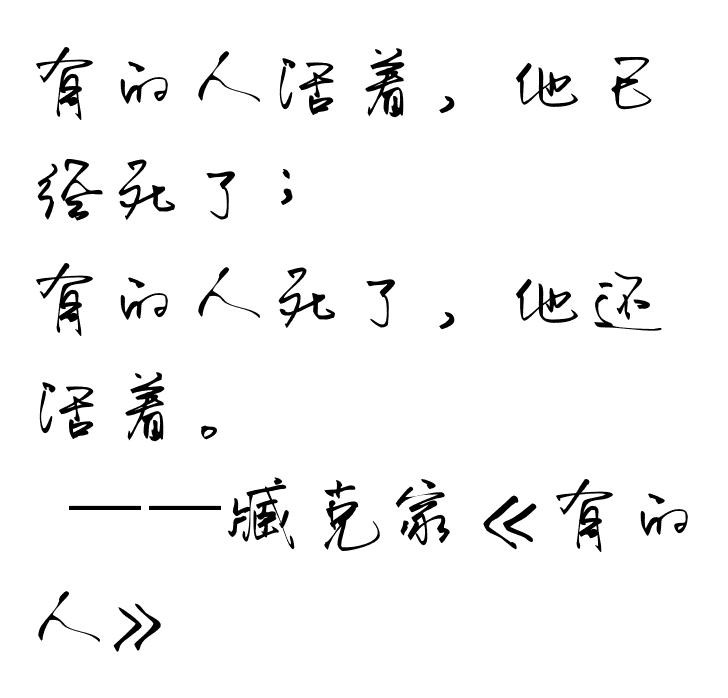 有的人活着，他已
经死了；
有的人死了，他还
活着。
——臧克家《有的
人》